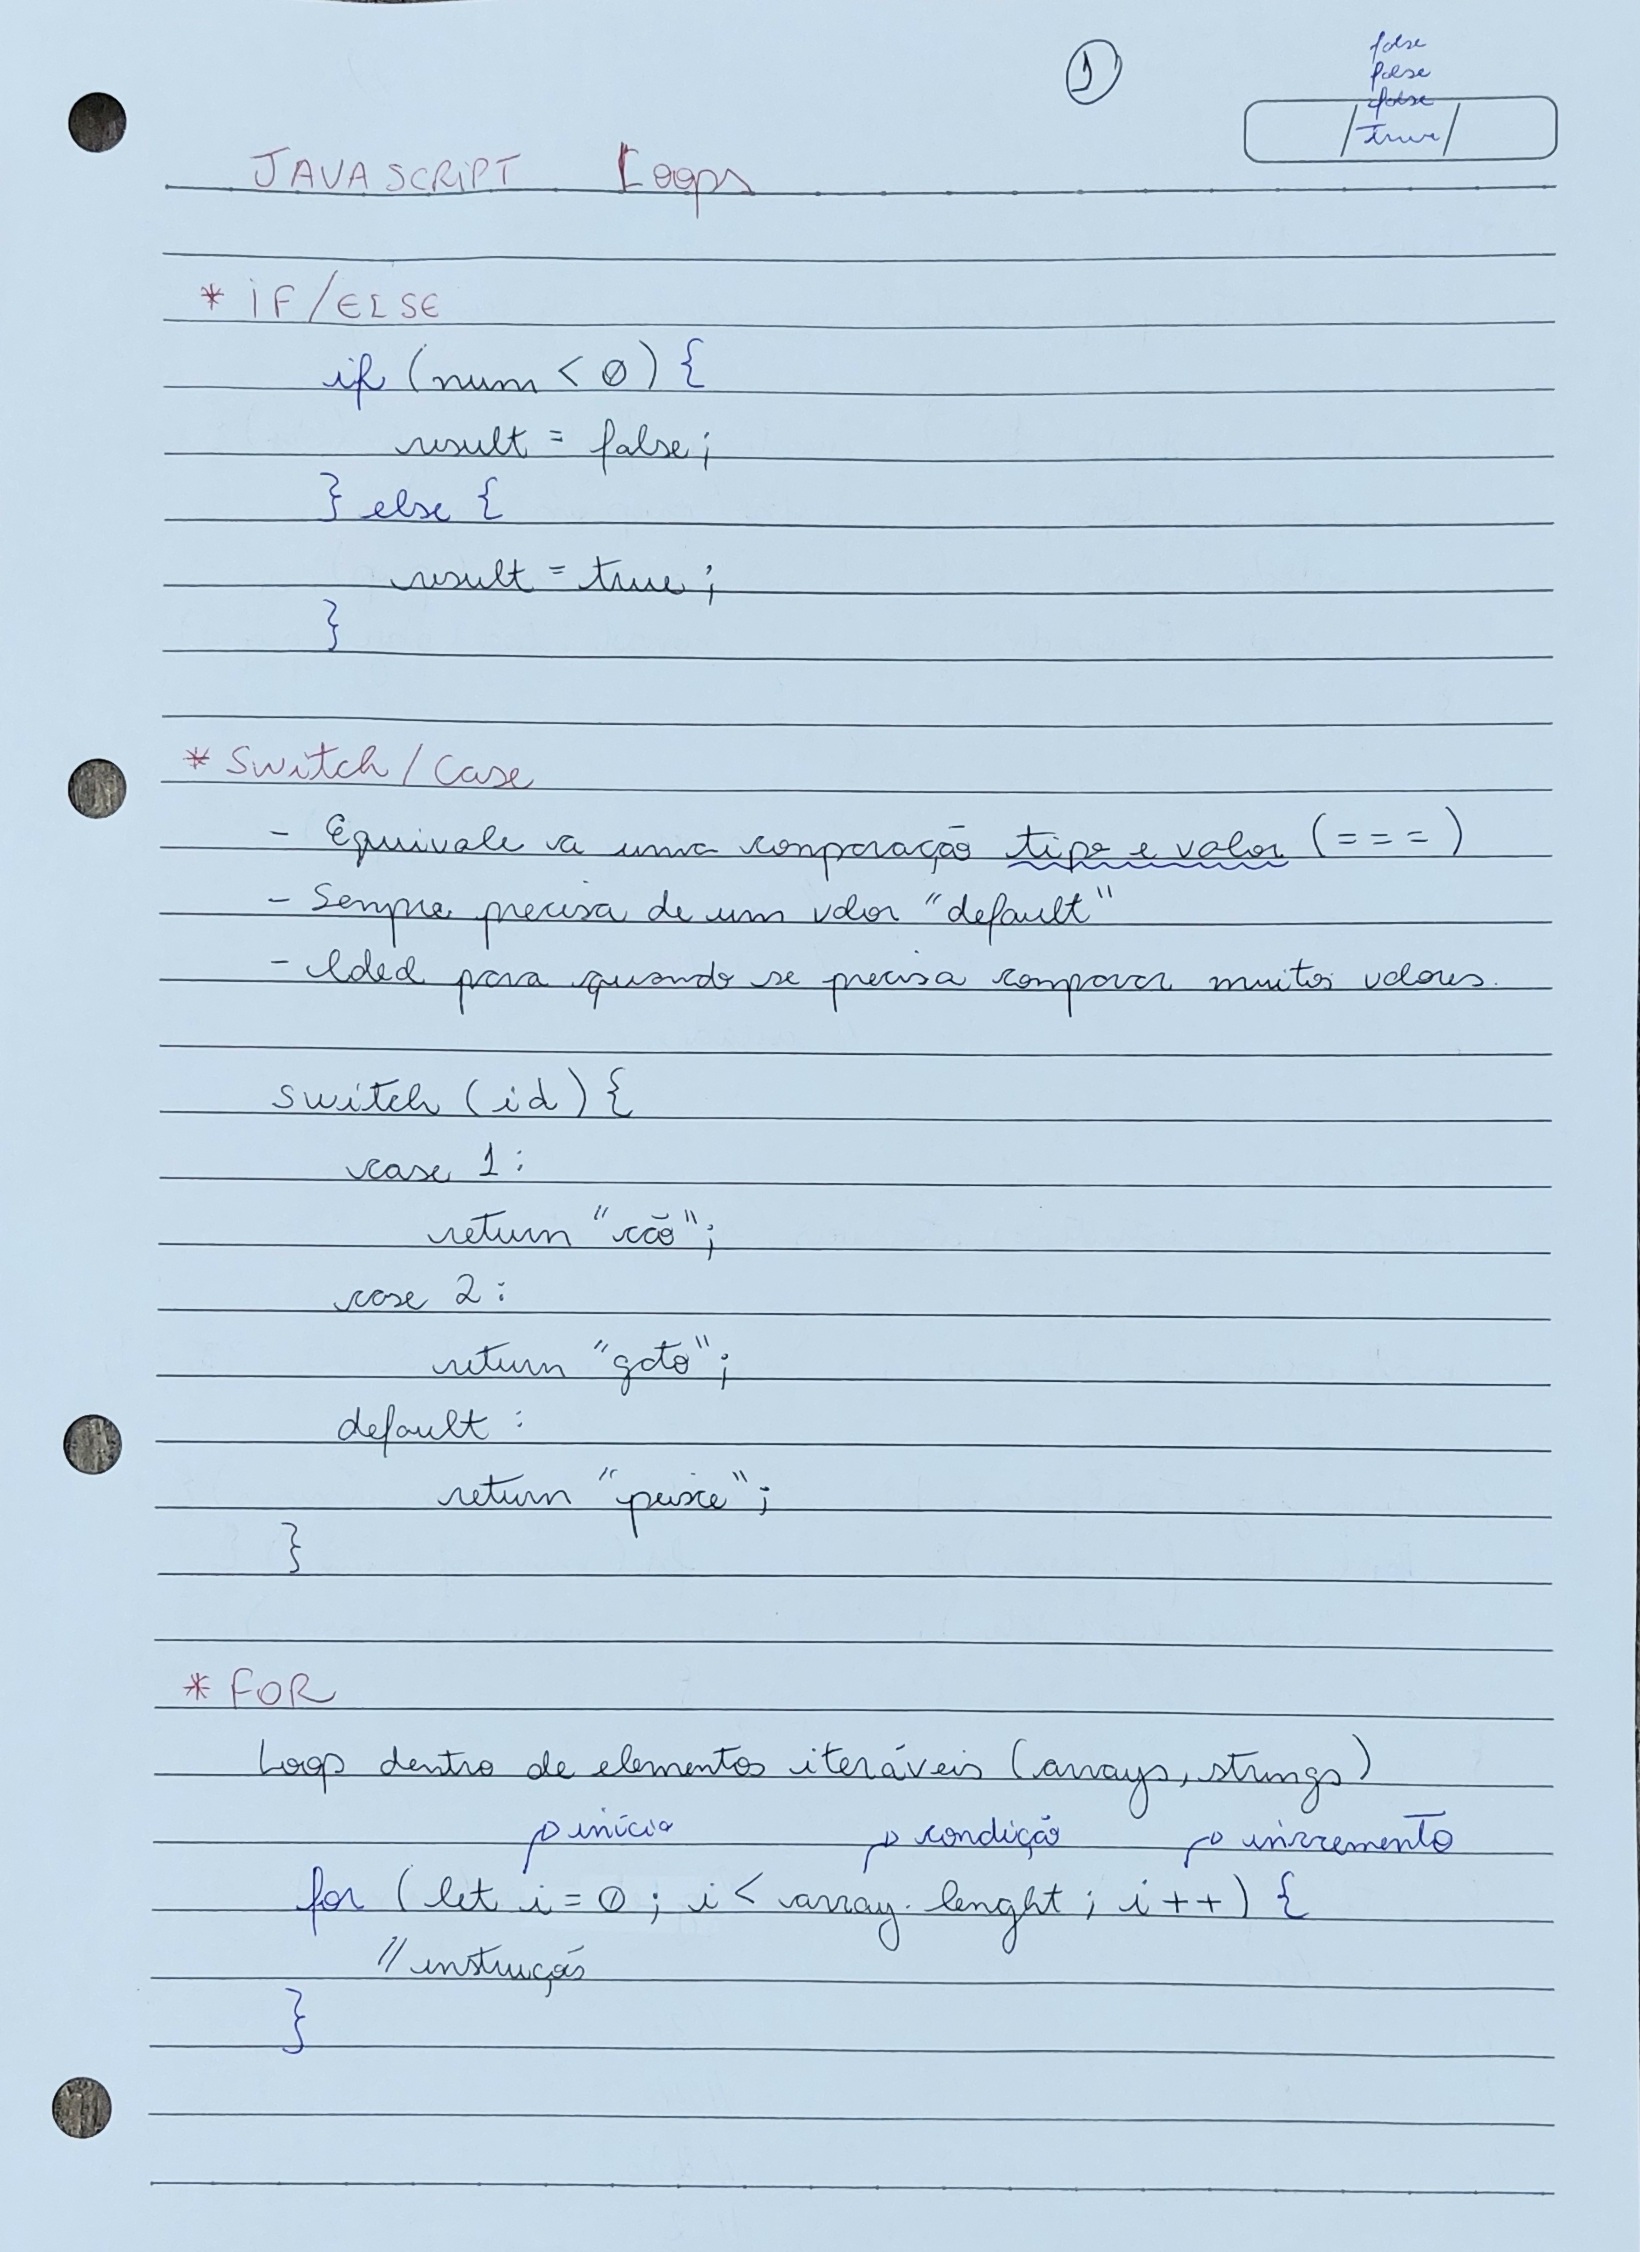 1
false
false
false
true
JAVASCRIPT Loops
* IF/ELSE
if (num < 0) {
result = false;
} else {
result = true;
}
* Switch/Case
- Equivale a uma comparação tipo e valor (===)
- Sempre precisa de um valor "default"
- Ideal para quando se precisa comparar muitos valores.
switch (id) {
case 1:
return "cão";
case 2:
return "gato";
default:
return "peixe";
}
* FOR
Loop dentro de elementos iteráveis (arrays, strings)
início condição incremento
for (let i = 0; i < array.lenght; i++) {
// instrução
}